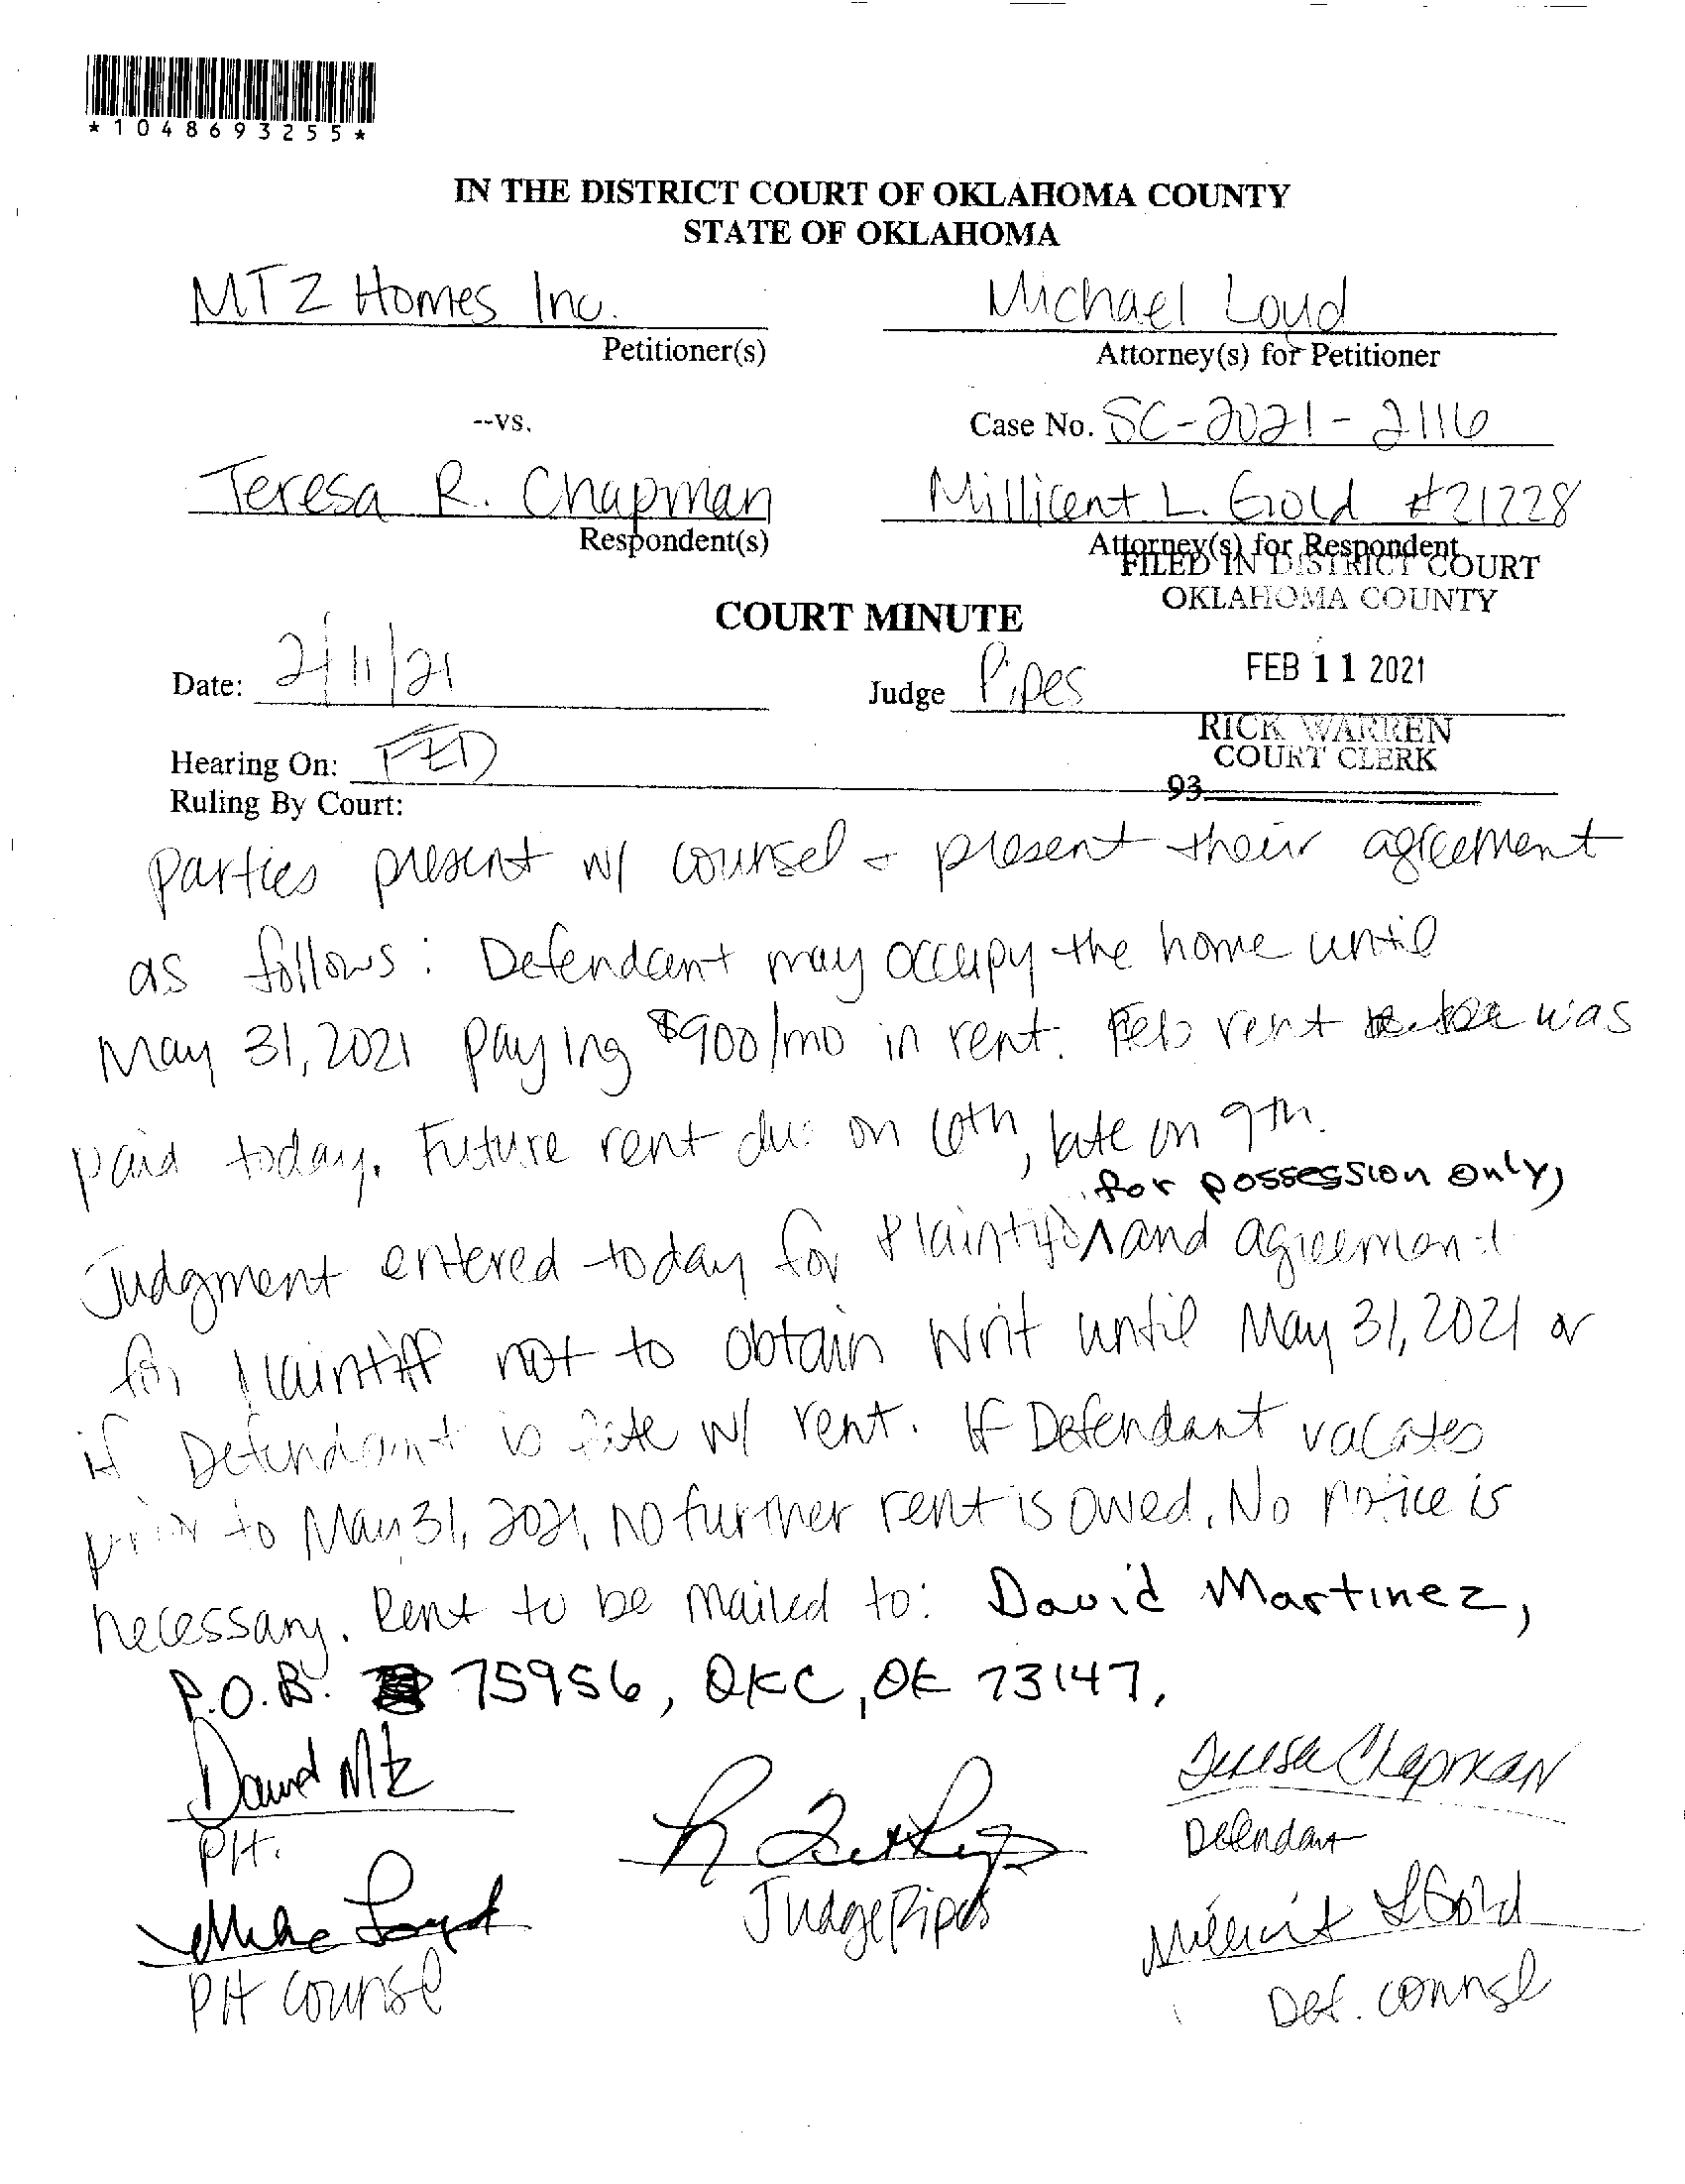 *1048693255*
IN THE DISTRICT COURT OF OKLAHOMA COUNTY
STATE OF OKLAHOMA
MTZ Homes Inc.
Petitioner(s)
Michael Loyd
Attorney(s) for Petitioner
--vs.
Case No. SC-2021-2116
Teresa R. Chapman
Respondent(s)
Millicent L. Gold #21228
Attorney(s) for Respondent
FILED IN DISTRICT COURT
OKLAHOMA COUNTY
COURT MINUTE
FEB 11 2021
Date: 2/11/21
Judge Pipes
RICK WARREN
COURT CLERK
Hearing On: FED
93
Ruling By Court:
parties present w/ counsel & present their agreement
as follows: Defendant may occupy the home until
May 31, 2021 paying $900/mo in rent. Feb rent was
paid today. Future rent due on 6th, late on 9th.
for possession only,
Judgment entered today for Plaintiff ^ and agreement
for Plaintiff not to obtain writ until May 31, 2021 or
if Defendant is late w/ rent. If Defendant vacates
prior to May 31, 2021, no further rent is owed. No notice is
necessary. Rent to be mailed to: David Martinez,
P.O.B. 75956, OKC, OK 73147.
David Mtz
Teresa Chapman
Pltf.
Defendant
Mike Loyd
Judge Pipes
Millicent L Gold
Pltf counsel
Def. counsel